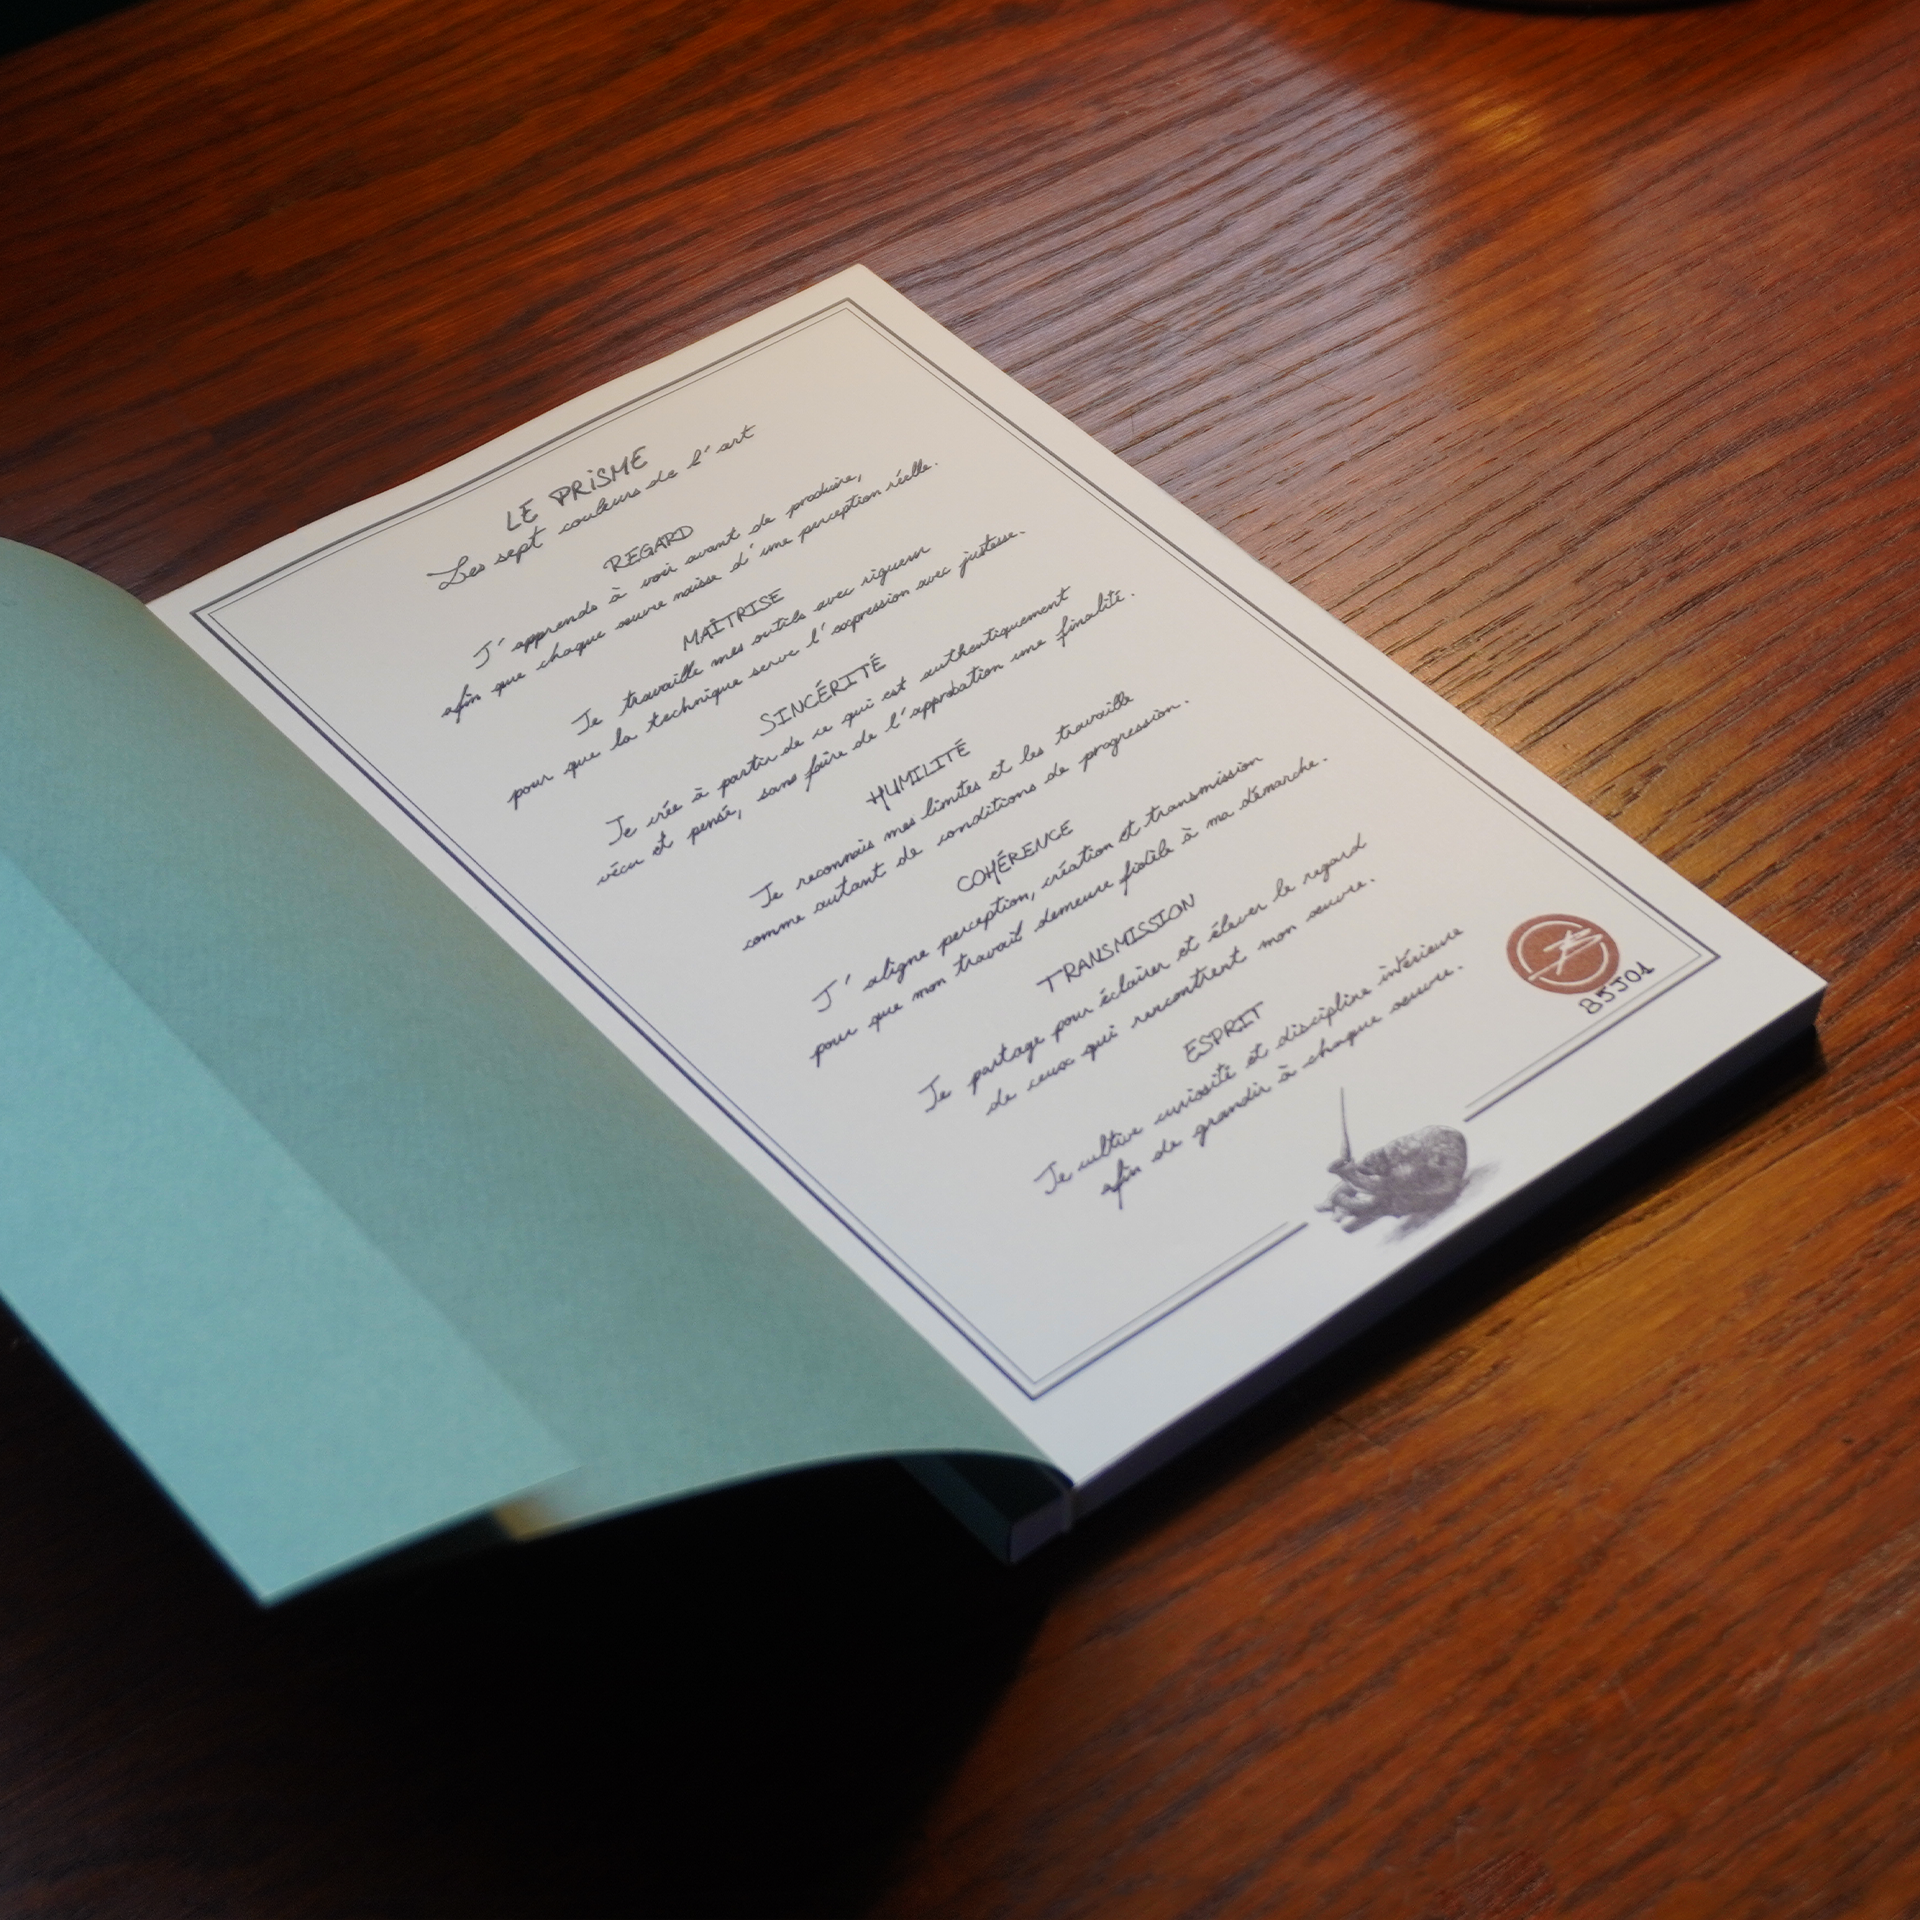 LE PRiSME
Les sept couleurs de l'art
REGARD
J'apprends à voir avant de produire,
afin que chaque œuvre naisse d'une perception réelle.
MAÎTRISE
Je travaille mes outils avec rigueur
pour que la technique serve l'expression avec justesse.
SINCÉRITÉ
Je crée à partir de ce qui est authentiquement
vécu et pensé, sans faire de l'approbation une finalité.
HUMILITÉ
Je reconnais mes limites et les travaille
comme autant de conditions de progression.
COHÉRENCE
J'aligne perception, création et transmission
pour que mon travail demeure fidèle à ma démarche.
TRANSMISSION
Je partage pour éclairer et élever le regard
de ceux qui rencontrent mon œuvre.
ESPRIT
Je cultive curiosité et discipline intérieure
afin de grandir à chaque œuvre.
85J01